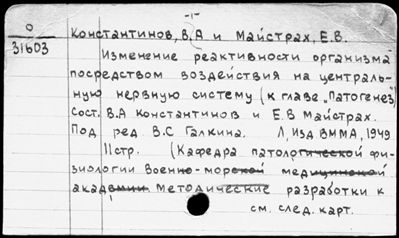 -1-
Константинов, В.А и Майстрах, Е.В.
О
31603
Изменение реактивности организма
посредством воздействия на централь-
ную нервную систему (к главе „Патогенез)
Сост. В.А Константинов и Е.В Майстрах.
Под ред В.С Галкина. Л, Изд ВММА, 1949
11стр. (Кафедра патологической фи-
зиологии Военно-морской медицинской
академии Методические разработки к
см. след. карт.